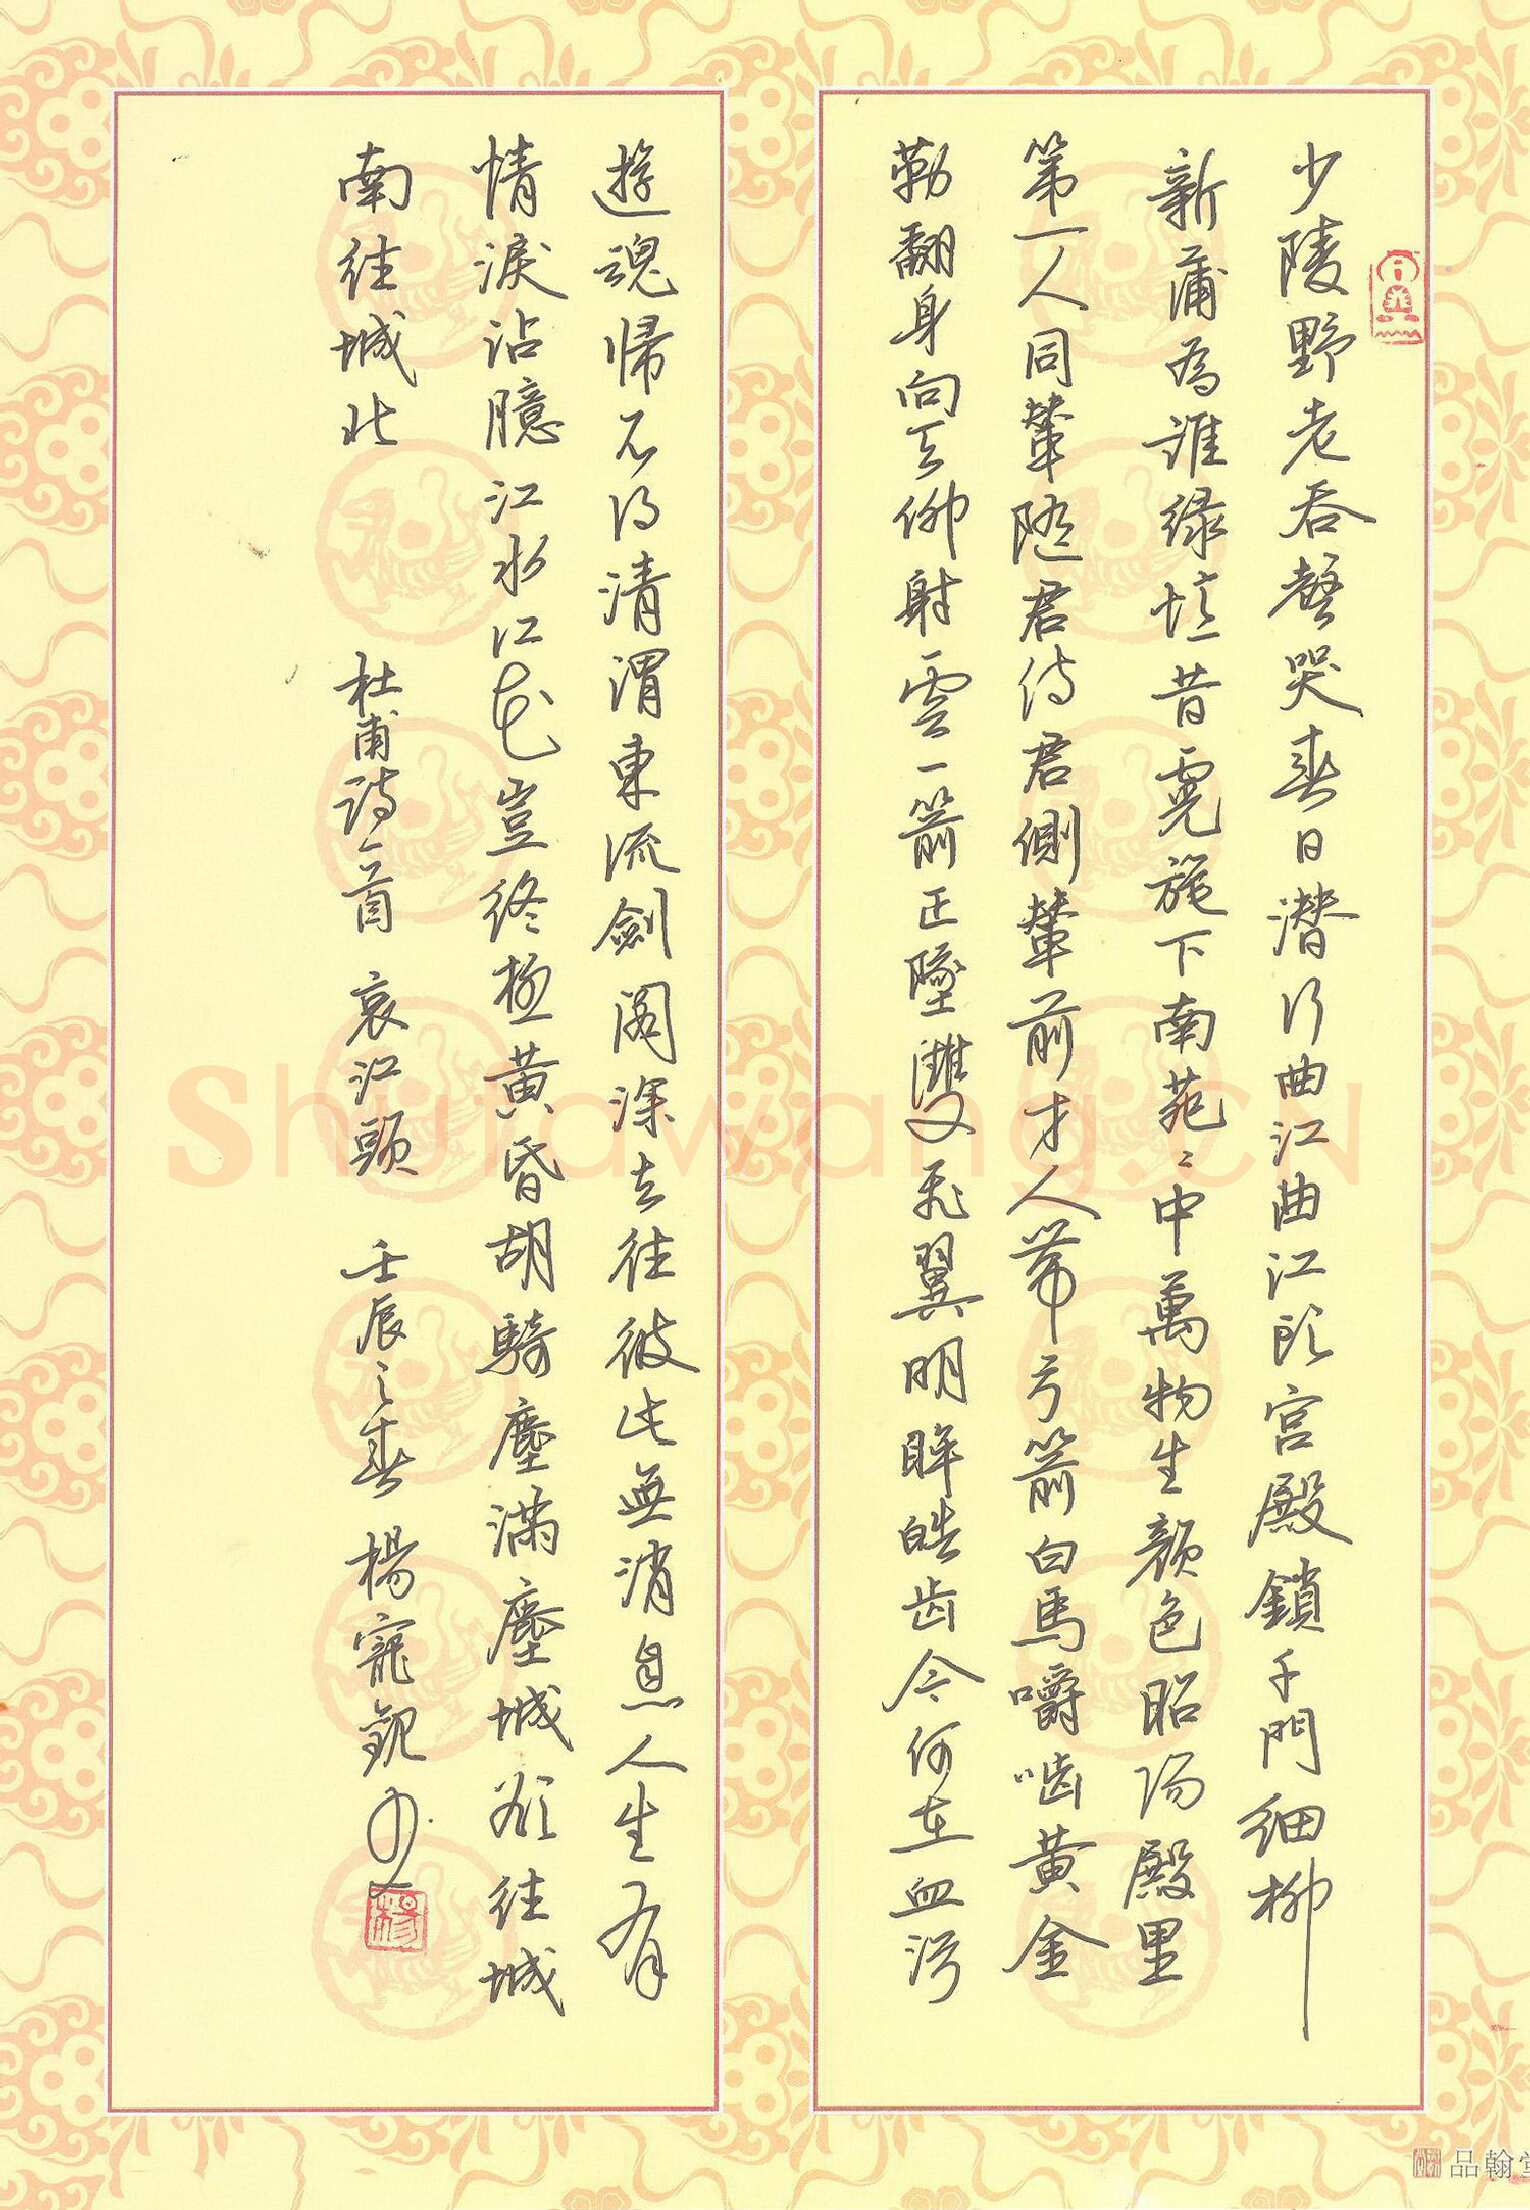 少陵野老吞聲哭春日潛行曲江曲江頭宮殿鎖千門細柳
新蒲為誰綠憶昔霓旌下南苑〻中萬物生顏色昭陽殿里
第一人同輦隨君侍君側輦前才人帶弓箭白馬嚼嚙黃金
勒翻身向天仰射雲一箭正墜雙飛翼明眸皓齒今何在血污
遊魂歸不得清渭東流劍閣深去住彼此無消息人生有
情淚沾臆江水江花豈終極黃昏胡騎塵滿塵城欲往城
南往城北 杜甫詩一首 哀江頭 壬辰之春 楊寵
Shufawang.cn
品翰堂